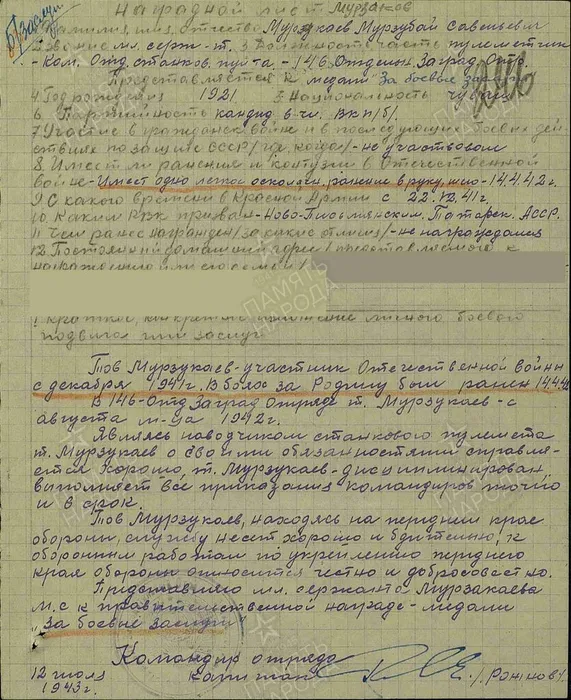 Б/заслуги
Наградной лист Мурзаков
1. Фамилия, имя, отчество Мурзукаев Мурзубай Савельевич
2. Звание мл. серж-т. 3 Должность часть пулеметчик
- Ком. Отд. станков. пул-та. - 146 Отдельн. Заград. Отр.
Представляется к медали "За боевые заслуги"
4. Год рождения 1921 5. Национальность чуваш
6. Партийность кандид. в чл. ВКП/б/.
7. Участие в гражданск. войне и в последующих боевых дей-
ствиях по защите СССР /где, когда/ - не участвовал
8. Имеет ли ранение и контузии в Отечественной
войне - Имеет одно легкое осколочн. ранение в руку, 14.4.42 г.
9. С какого времени в Красной Армии с 22.12.41 г.
10. Каким РВК призван - Ново-Письмянским. Татарск. АССР.
11. Чем ранее Награжден /за какие отличия/ - не награждался
12. Постоянный домашний адрес представляемого к
награждению или его семьи
краткое, конкретное изложение личного боевого
подвига или заслуг
Тов Мурзукаев - участник Отечественной войны
с декабря 1941 г. В боях за Родину был ранен 14.4.42
В 146-Отд Заград Отряде т. Мурзукаев - с
августа м-ца 1942 г.
Являясь наводчиком станкового пулемета
т. Мурзукаев со своими обязанностями справля-
ется хорошо, т. Мурзукаев - дисциплинирован
выполняет все приказания командиров точно
и в срок.
Тов. Мурзукаев, находясь на переднем крае
обороны, службу несет хорошо и бдительно, к
оборонным работам по укреплению переднего
края обороны относится честно и добросовестно.
Представляю мл. сержанта Мурзакаева
М.С к правительственной награде - медали
"За боевые заслуги"
Командир отряда
12 июля капитан /Рожнов/.
1943 г.
ПАМЯТЬ
НАРОДА